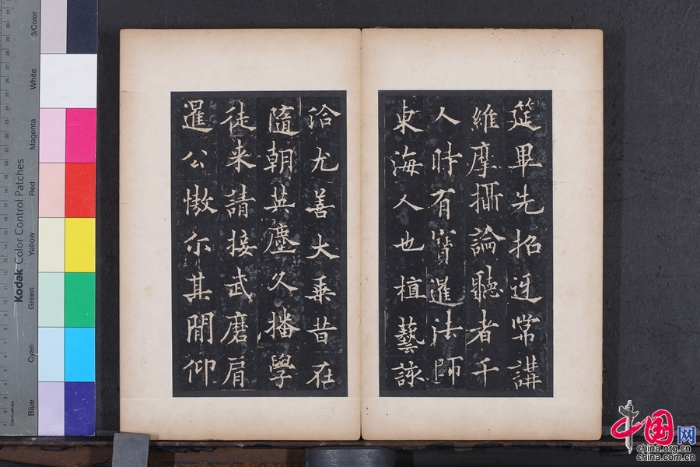 筵畢先招迓常講
維摩攝論聽者千
人時有寳暹法師
東海人也植藝該
洽尤善大乗昔在
隨朝英塵久播學
徒来請接武磨肩
暹公傲尒其閒仰
Kodak Color Control Patches
Blue
Cyan
Green
Yellow
Red
Magenta
White
3/Color
中国网
china.org.cn
china.com.cn